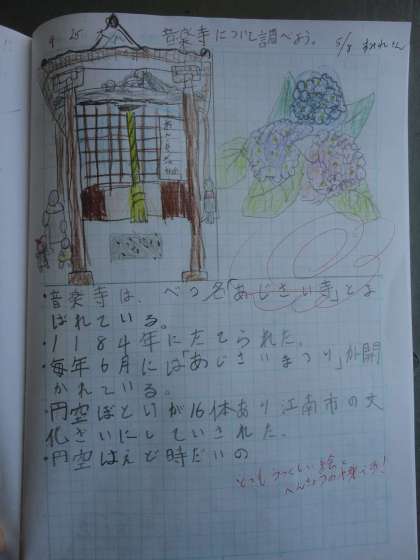 4 25 音楽寺について調べよう。 5/8
・音楽寺は、べつ名「あじさい寺」とよ
ばれている。
・1184年にたてられた。
・毎年6月には「あじさいまつり」が開
かれている。
・円空ぼとけが16体あり江南市の文
化ざいにしていされた。
・円空はえど時だいの
とてもうつくしい絵と